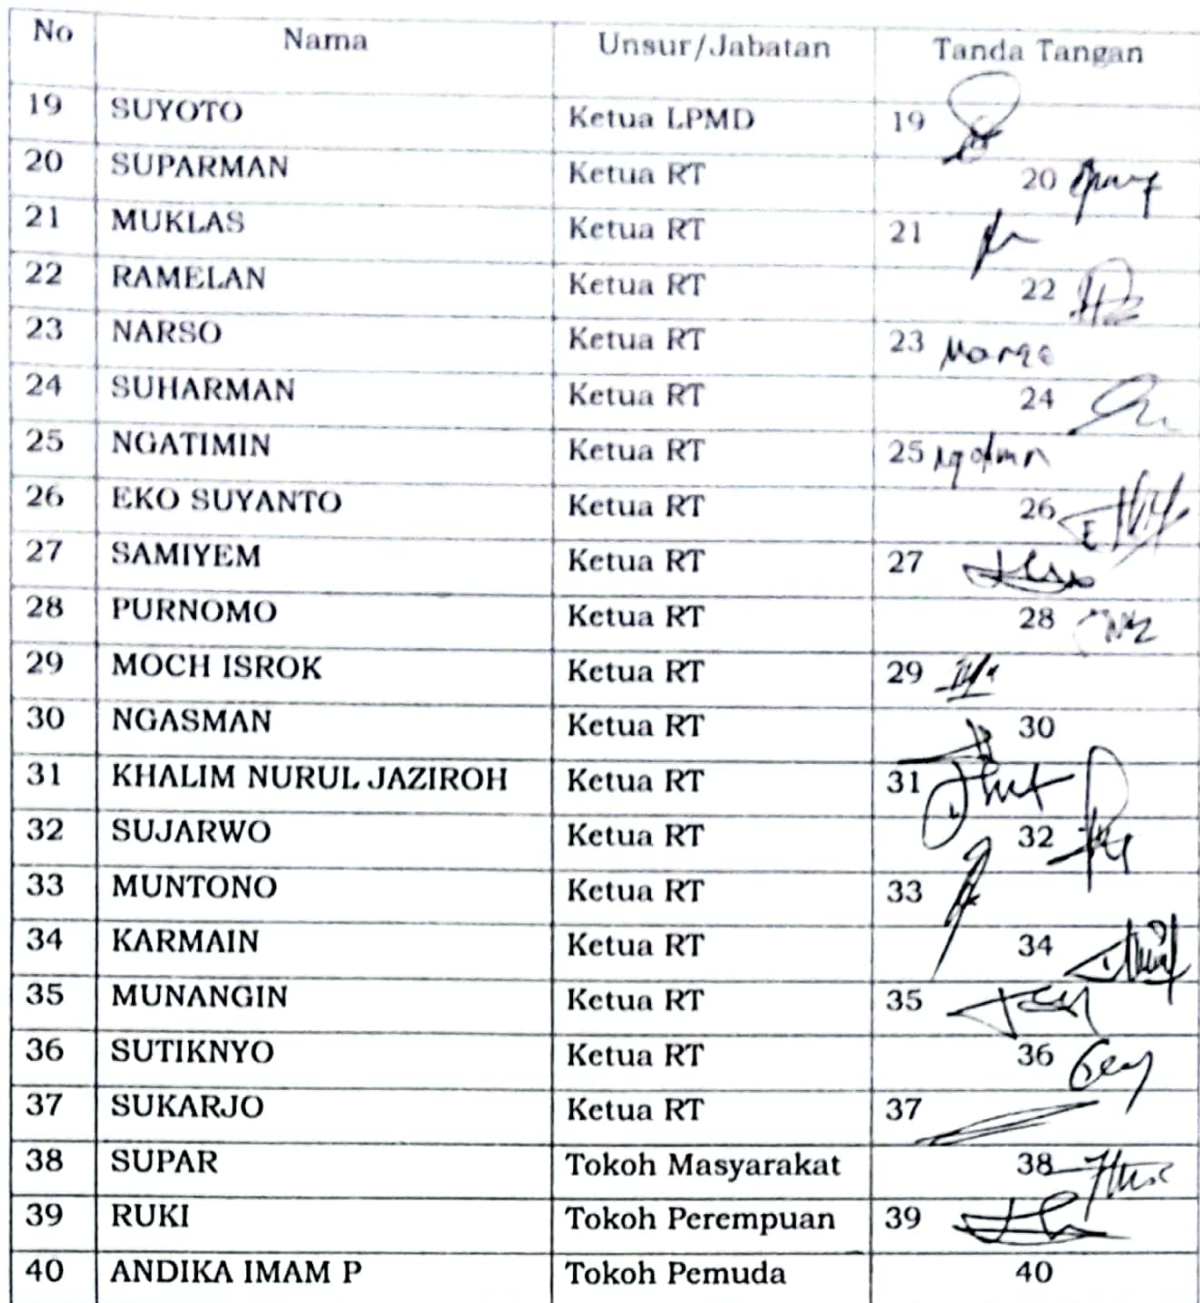 No Nama Unsur/Jabatan Tanda Tangan
19 SUYOTO Ketua LPMD 19
20 SUPARMAN Ketua RT 20
21 MUKLAS Ketua RT 21
22 RAMELAN Ketua RT 22
23 NARSO Ketua RT 23
24 SUHARMAN Ketua RT 24
25 NGATIMIN Ketua RT 25
26 EKO SUYANTO Ketua RT 26
27 SAMIYEM Ketua RT 27
28 PURNOMO Ketua RT 28
29 MOCH ISROK Ketua RT 29
30 NGASMAN Ketua RT 30
31 KHALIM NURUL JAZIROH Ketua RT 31
32 SUJARWO Ketua RT 32
33 MUNTONO Ketua RT 33
34 KARMAIN Ketua RT 34
35 MUNANGIN Ketua RT 35
36 SUTIKNYO Ketua RT 36
37 SUKARJO Ketua RT 37
38 SUPAR Tokoh Masyarakat 38
39 RUKI Tokoh Perempuan 39
40 ANDIKA IMAM P Tokoh Pemuda 40